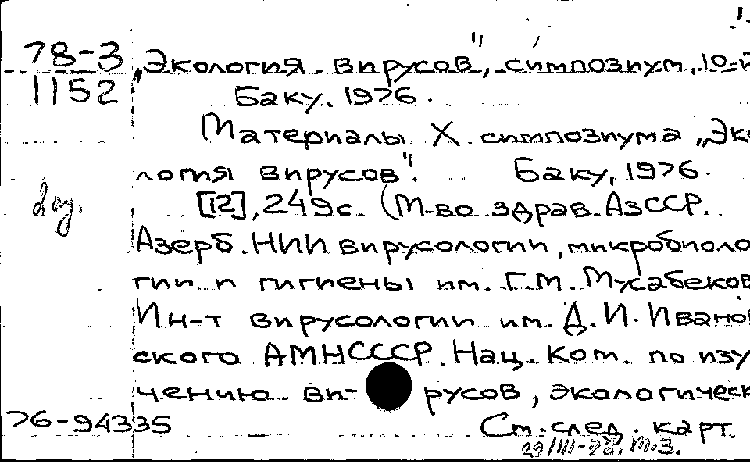 78-3
1152
„Экология вирусов", симпозиум, 10-й
Баку. 1976.
Материалы X симпозиума „Эко
логия вирусов". Баку, 1976.
[12], 249с. (М-во здрав. АзССР.
Азерб. НИИ вирусологии, микробиоло
гии и гигиены им. Г.М. Мусабеков
Ин-т вирусологии им. Д.И. Иванов
ского АМНСССР. Нац. Ком. по изу
чению ви- русов, экологическ
76-94335
См. след. карт.